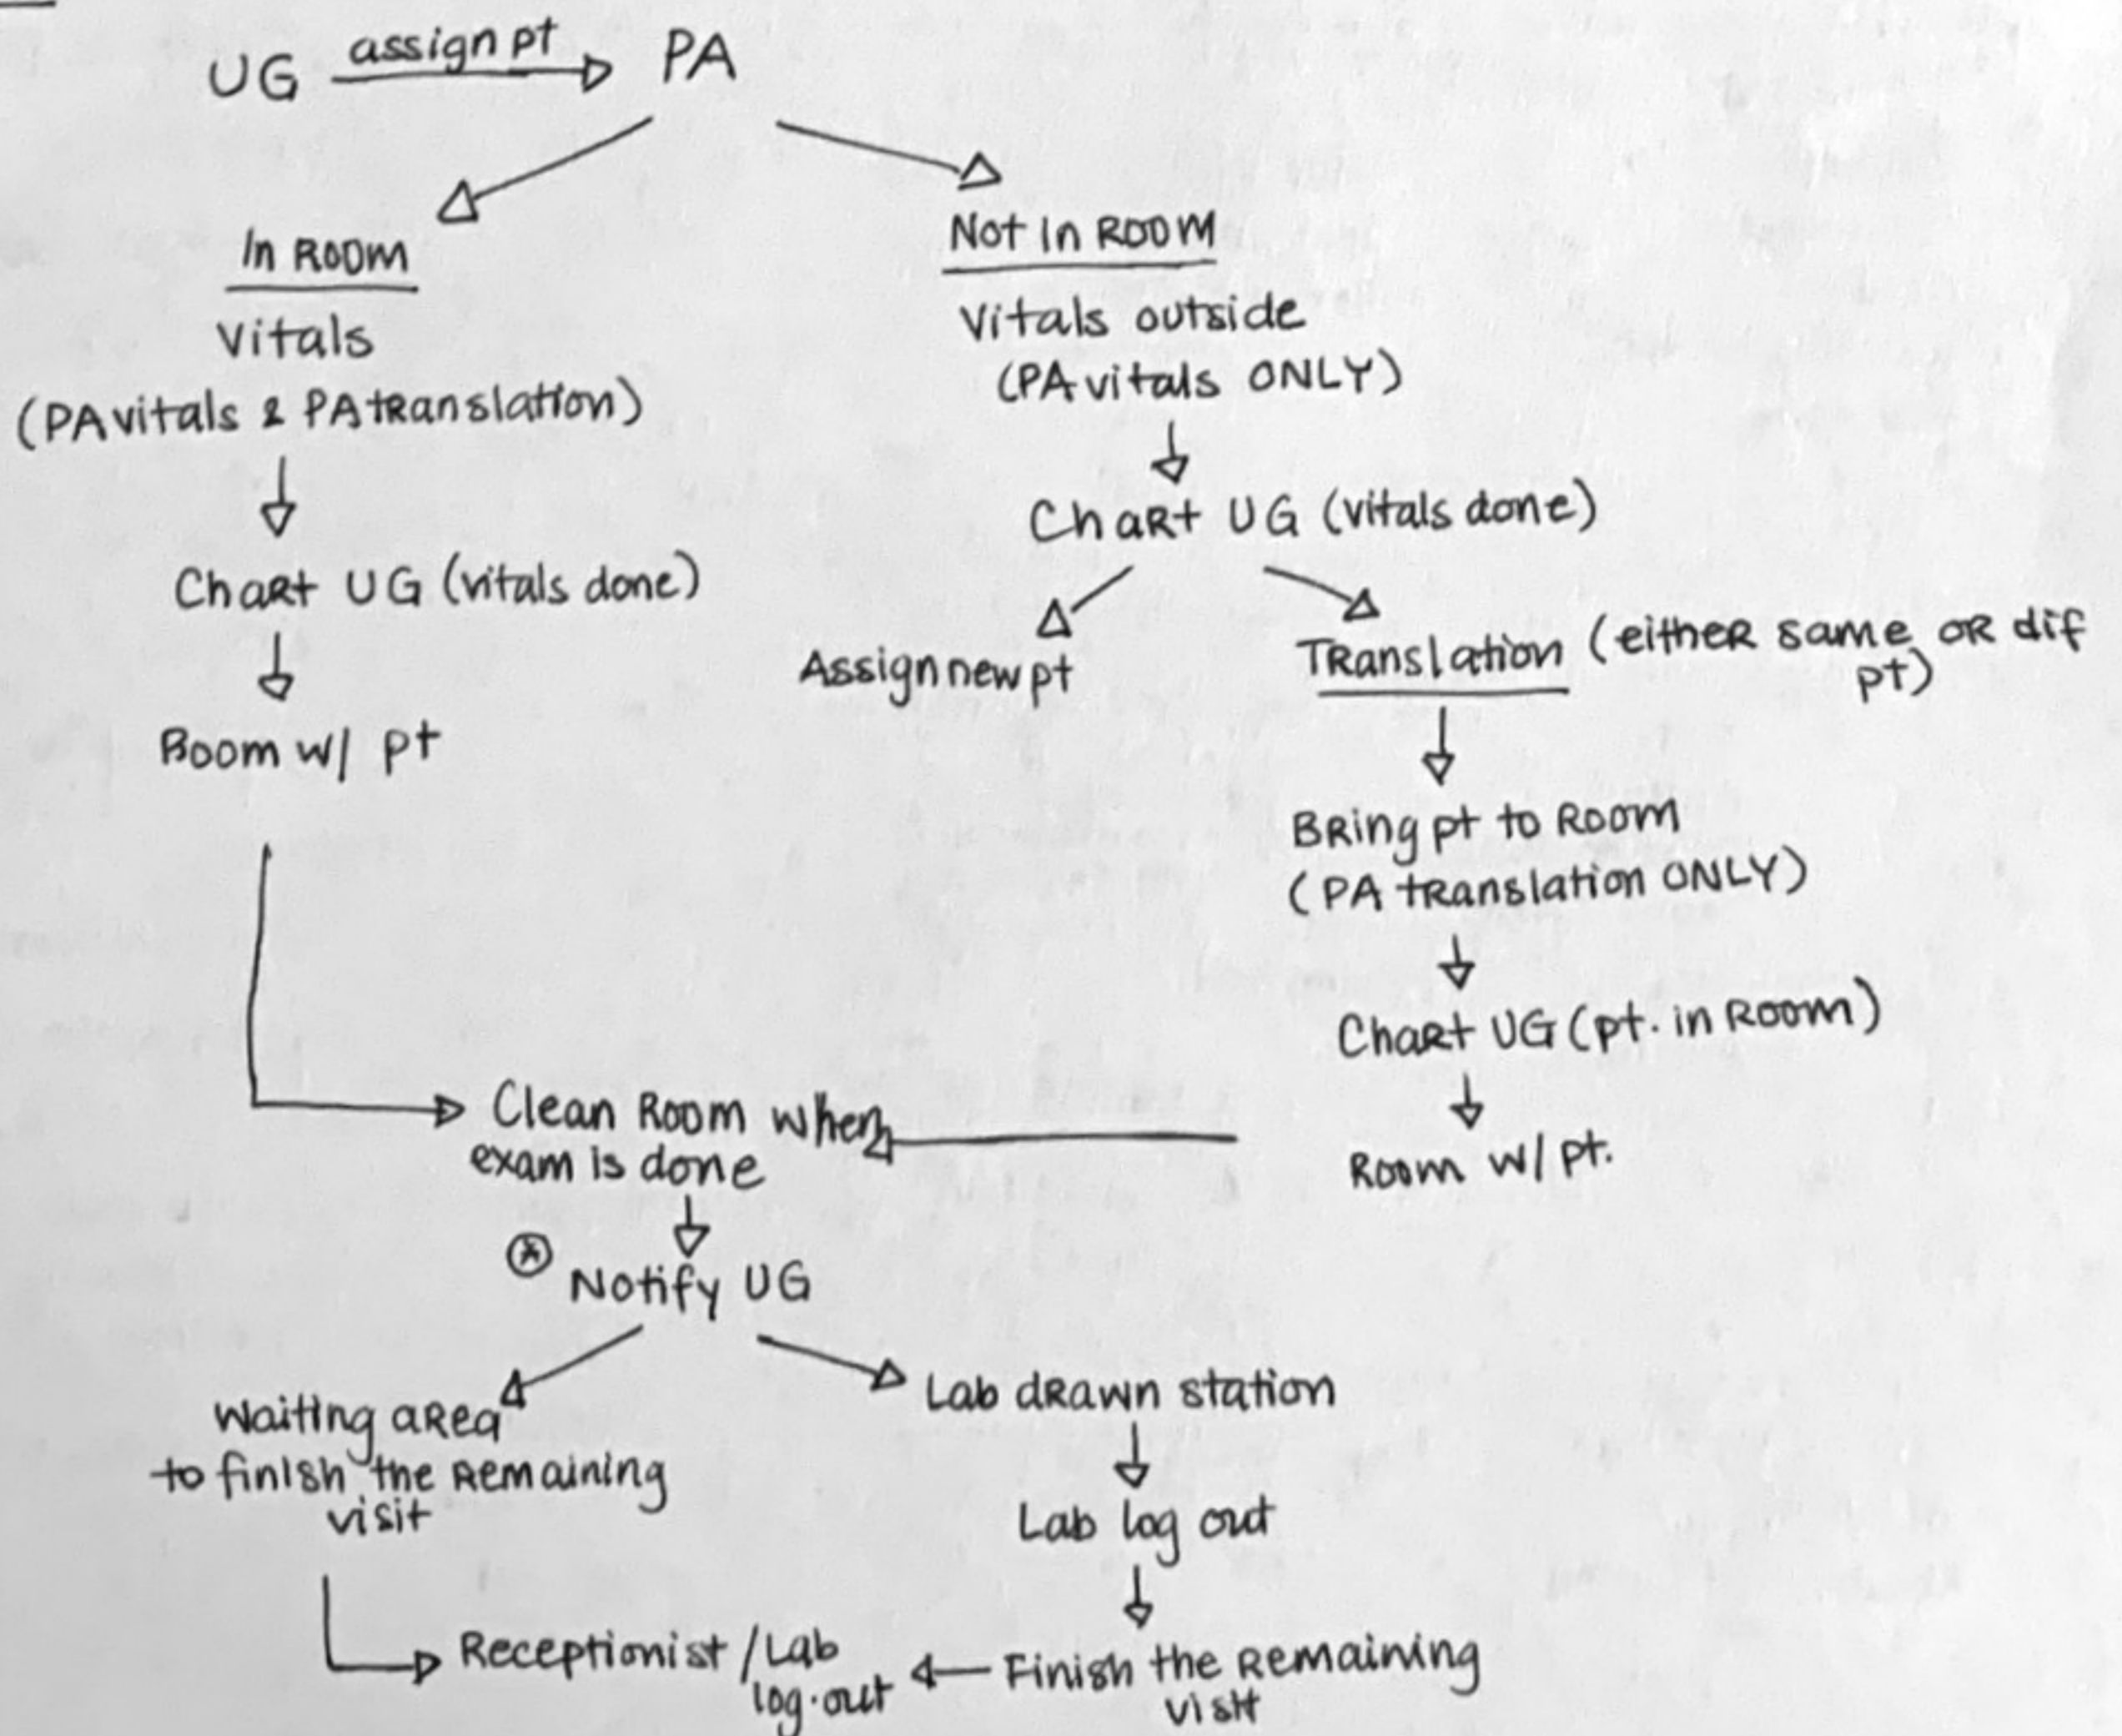 UG assign pt PA
In Room
Vitals
(PA vitals & PA translation)
Chart UG (vitals done)
Room w/ pt
Not in Room
Vitals outside
(PA vitals ONLY)
Chart UG (vitals done)
Assign new pt
Translation (either same or dif
pt)
Bring pt to Room
(PA translation ONLY)
Chart UG (pt. in Room)
Room w/ pt.
Clean Room when
exam is done
Notify UG
Waiting area
to finish the remaining
visit
Lab drawn station
Lab log out
Finish the remaining
visit
Receptionist / Lab
log.out